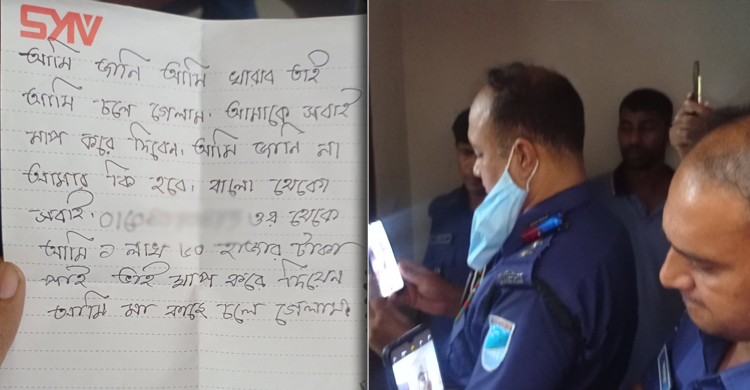 SYN
আমি জানি আমি খারাপ তাই
আমি চলে গেলাম. আমাকে সবাই
মাপ করে দিবেন. আমি জানি না
আমার কি হবে. বালো থেকো
সবাই. 016 ওর থেকে
আমি ১ লাখ ৮০ হাজার টাকা
পাই তাই মাপ করে দিয়েন
আমি মা কাছে চলে গেলাম.